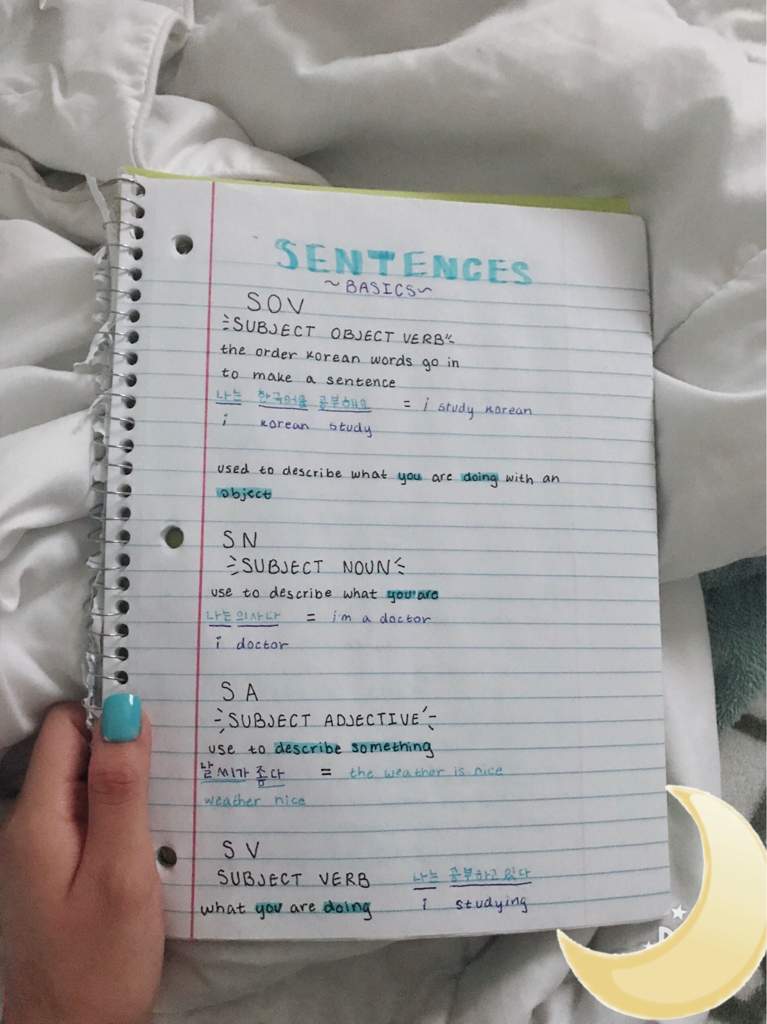 SENTENCES
~BASICS~
SOV
SUBJECT OBJECT VERB
the order korean words go in
to make a sentence
나는 한국어를 공부해요 = i study korean
i korean study
used to describe what you are doing with an
object
SN
SUBJECT NOUN
use to describe what you are
나는 의사다 = i'm a doctor
i doctor
SA
SUBJECT ADJECTIVE
use to describe something
날씨가 좋다 = the weather is nice
weather nice
SV
SUBJECT VERB 나는 공부하고 있다
what you are doing i studying